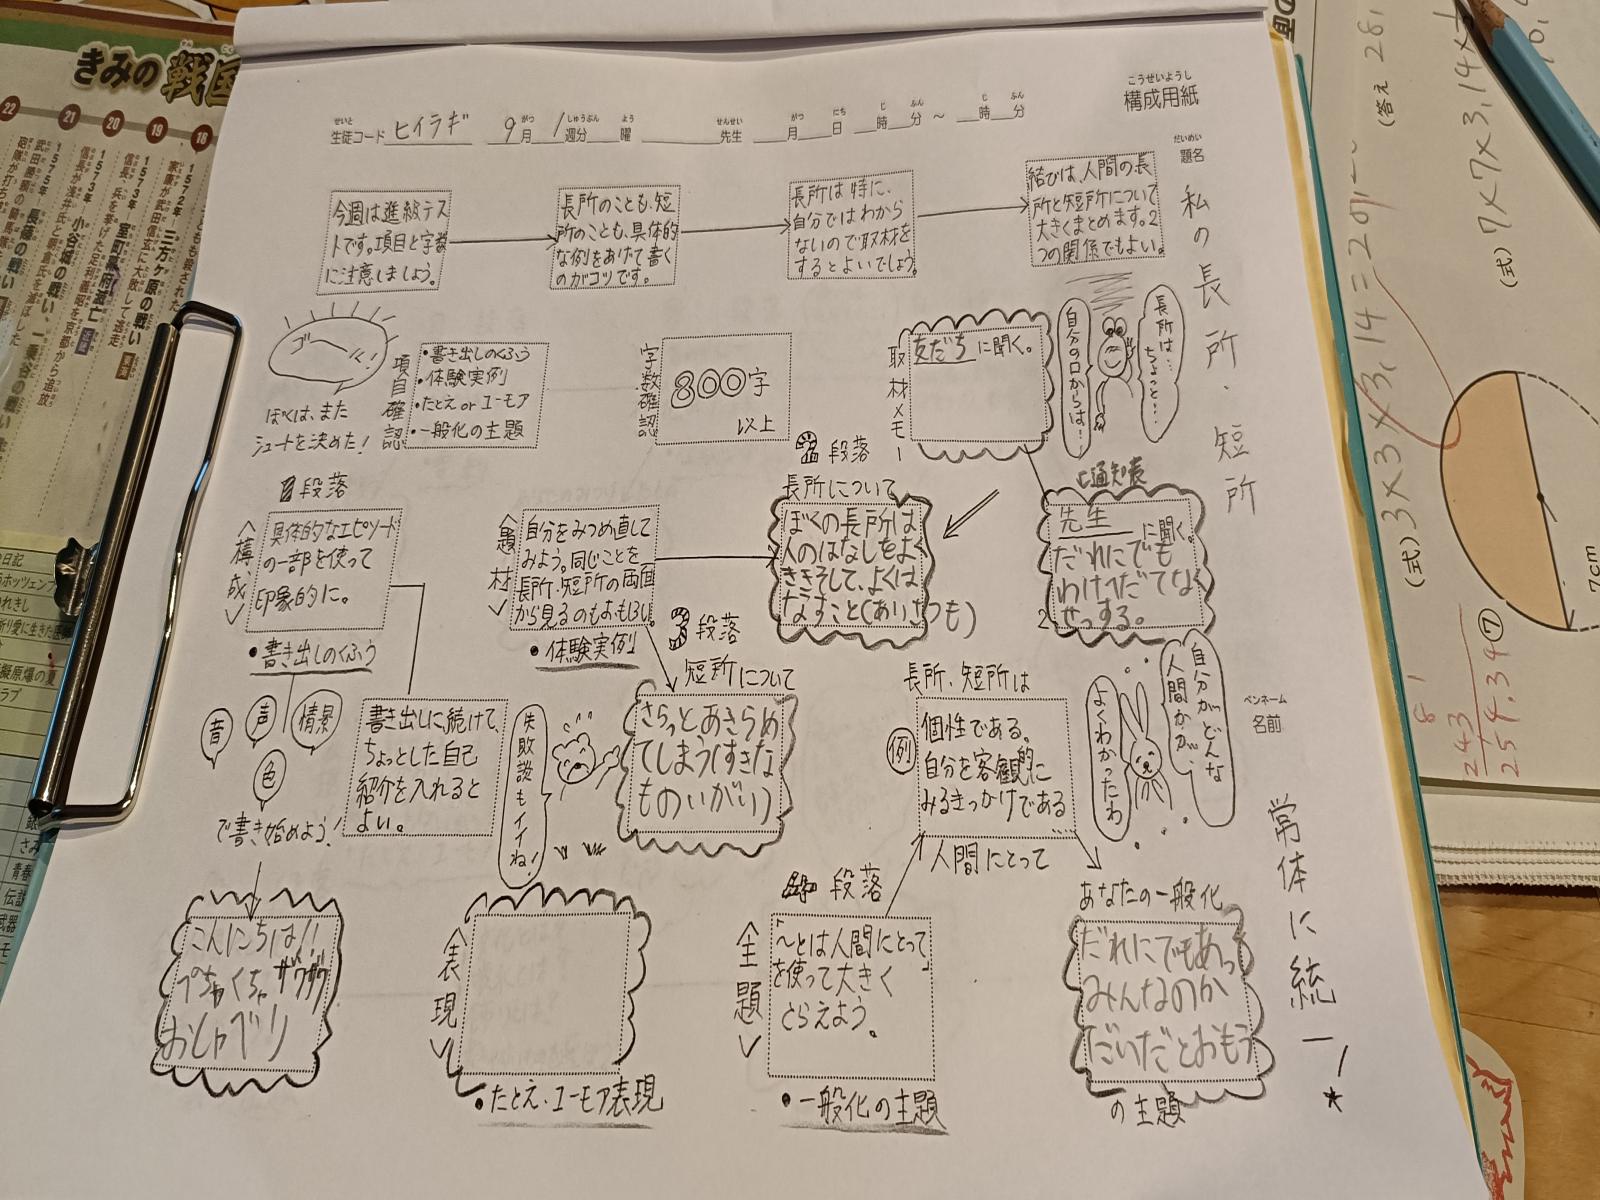 構成用紙
生徒コード ヒイラギ 9月1週分 曜 先生 月 日 時 分 ～ 時 分
題名
私の長所・短所
ペンネーム
名前
常体に統一!
今週は進級テス
トです。項目と字数
に注意しましょう。
長所のことも、短
所のことも、具体的
な例をあげて書く
のがコツです。
長所は特に、
自分ではわから
ないので取材を
するとよいでしょう。
結びは、人間の長
所と短所について
大きくまとめます。2
つの関係でもよい。
ぼくは、また
シュートを決めた!
項目確認
・書き出しのくふう
・体験実例
・たとえ or ユーモア
・一般化の主題
字数確認
800字
以上
取材メモー
友だちに聞く。
自分の口からは…
長所は…
ちょっと…
通知表
先生に聞く。
だれにでも
わけへだてなく
せっする。
段落
〈構成〉
具体的なエピソード
の一部を使って
印象的に。
・書き出しのくふう
音
声
情景
色
で書き始めよう!
書き出しに続けて、
ちょっとした自己
紹介を入れると
よい。
こんにちは!!
ぺちゃくちゃザワザワ
おしゃべり
〈題材〉
自分をみつめ直して
みよう。同じことを
長所・短所の両面
から見るのもおもしろい。
・体験実例
2段落
長所について
ぼくの長所は
人のはなしをよく
ききそして、よくは
なすこと(あいさつも)
3段落
短所について
さらっとあきらめ
てしまう(すきな
ものいがい)
失敗談もイイね!
〈表現〉
・たとえ・ユーモア表現
段落
〈主題〉
「～とは人間にとって」
を使って大きく
とらえよう。
・一般化の主題
長所、短所は
例
個性である。
自分を客観的に
みるきっかけである
….
人間にとって
自分がどんな
人間かが、
よくわかったわ
あなたの一般化
だれにでもあっ
みんなのか
だいだとおもう
の主題
きみの戦国
22
21
20
19
18
1575年 長篠の戦い
1573年 小谷城の戦い、一乗谷の戦い
1573年 室町幕府滅亡
信長が、兵を挙げた足利義昭を京都から追放
1572年 三方ケ原の戦い
家康が武田信玄に大敗して逃走
(式) 7×7×3.14×
(式) 3×3×3.14=
7cm
⑦